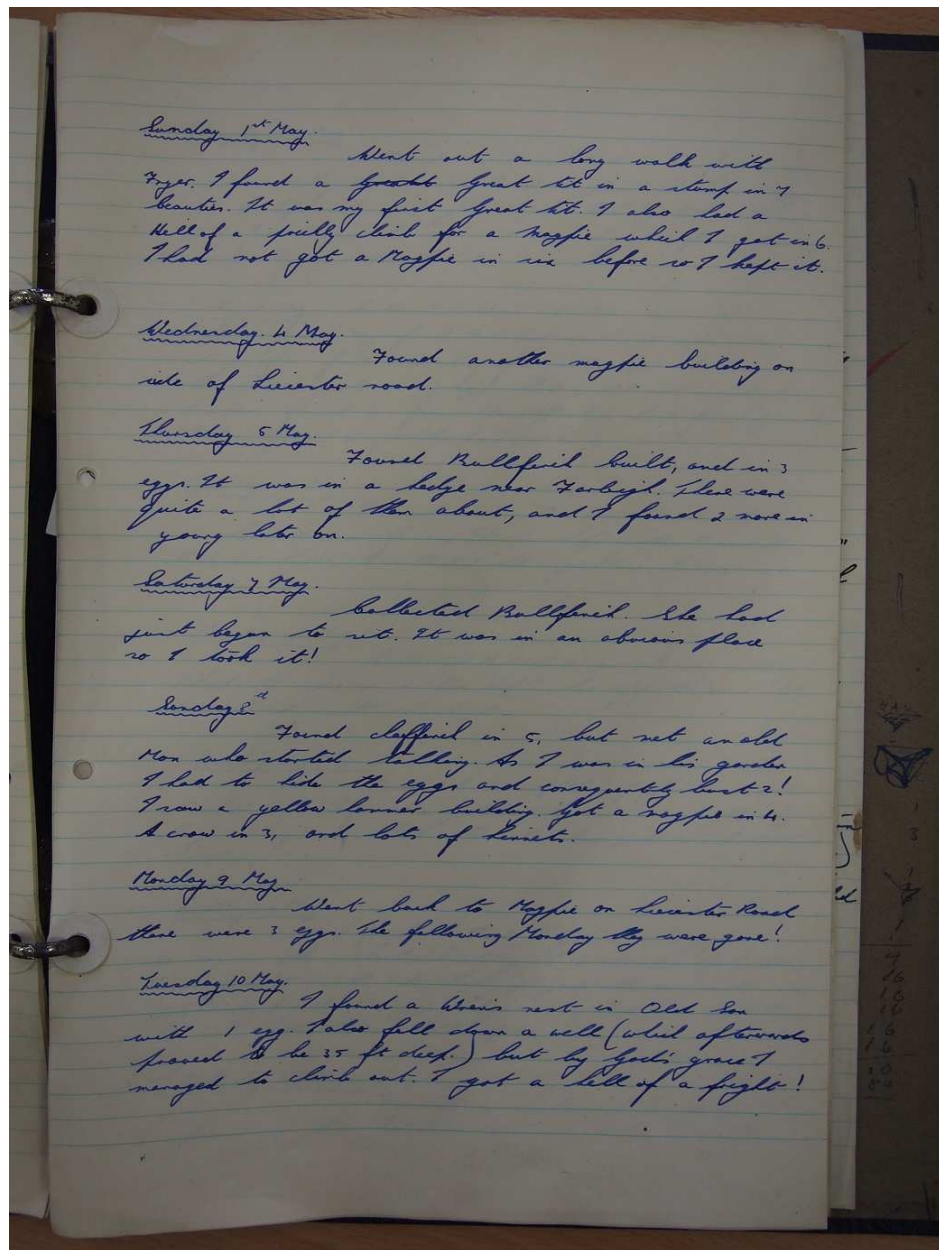 Sunday 1st May.
Went out a long walk with
Fryer. I found a Great Great tit in a stump in 7
beauties. It was my first Great tit. I also had a
Hell of a climb for a Magpie which I got in 6.
I had not got a Magpie in six before so I kept it.
Wednesday. 4 May.
Found another magpie building on
side of Leicester road.
Thursday 5 May.
Found Bullfinch built, and in 3
eggs. It was in a hedge near Farleigh. There were
quite a lot of them about, and I found 2 more in
young later on.
Saturday 7 May.
Collected Bullfinch. She had
just begun to sit. It was in an obvious place
so I took it!
Sunday 8th
Found chaffinch in 5, but met an old
Man who started talking. As I was in his garden
I had to hide the eggs and consequently bust 2!
I saw a yellow hammer building. Got a magpie in 4.
A crow in 3, and lots of linnets.
Monday 9 May
Went back to Magpie on Leicester Road
there were 3 eggs. The following Monday they were gone!
Tuesday 10 May.
I found a Wren's nest in Old
with 1 egg. I also fell down a well (which afterwards
proved to be 35 ft deep.) but by God's grace I
managed to climb out. I got a hell of a fright!